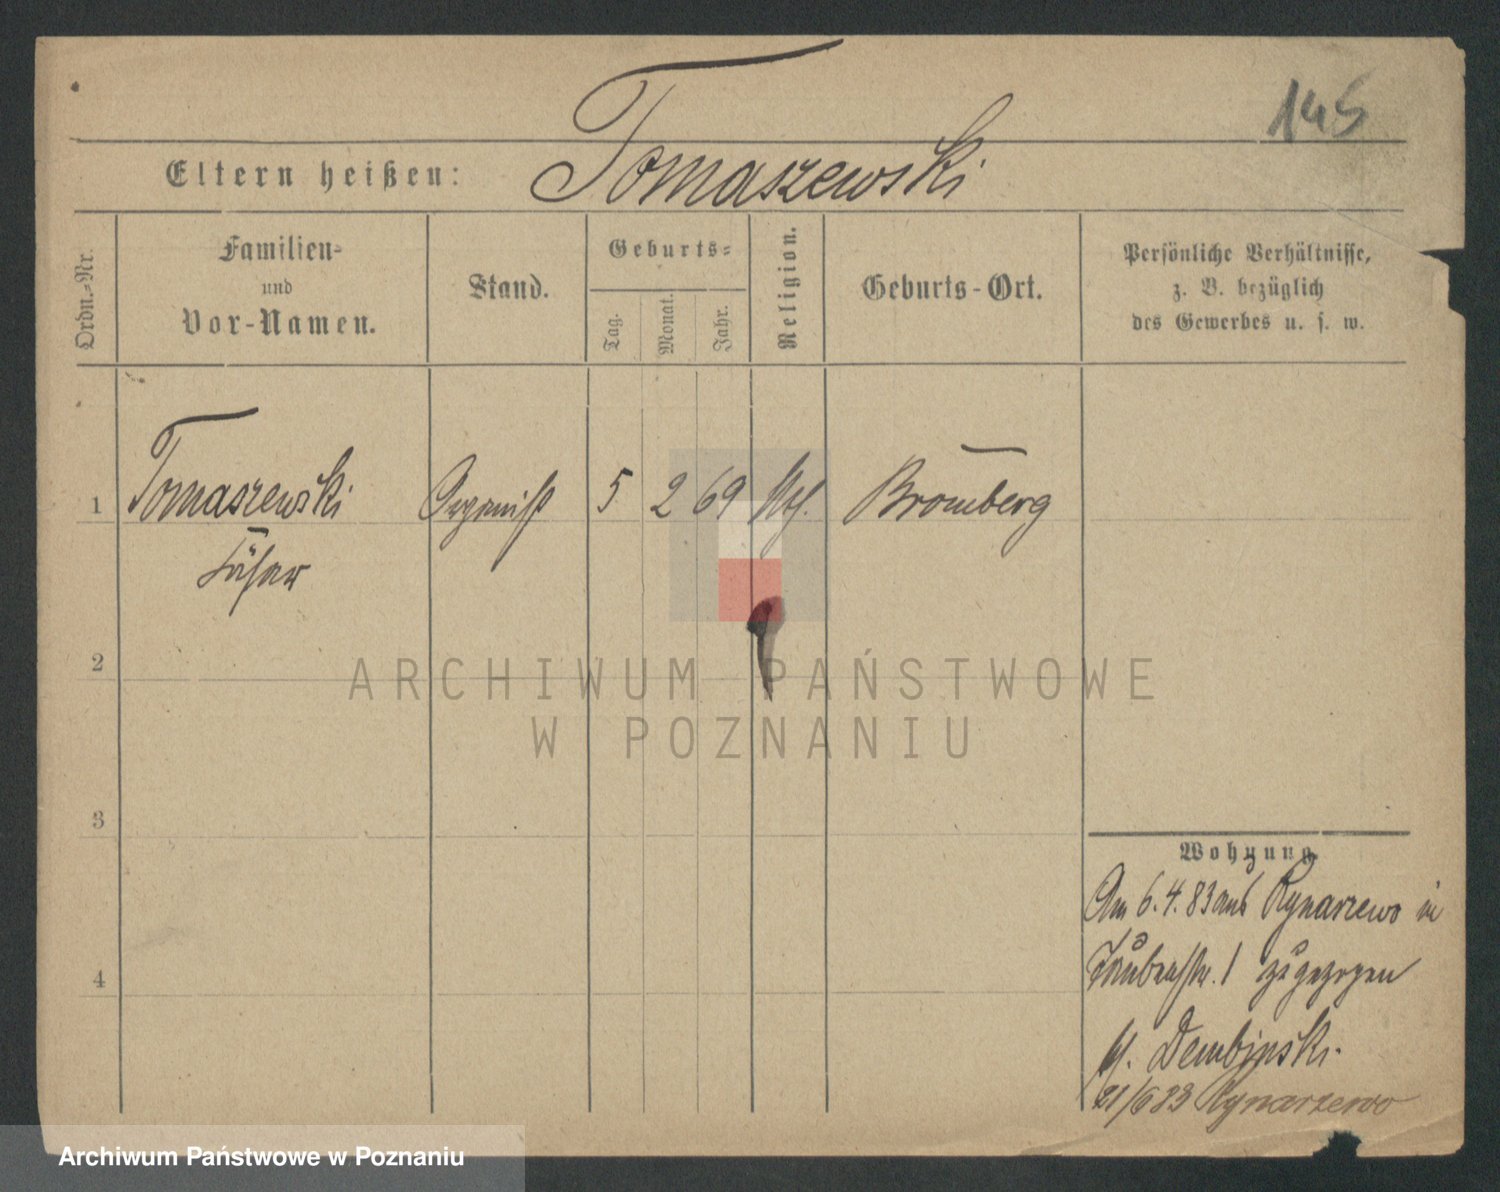 145
Eltern heißen: Tomaszewski
Ordn.-Nr.
Familien-
und
Vor-Namen.
Stand.
Geburts-
Tag.
Monat.
Jahr.
Religion.
Geburts-Ort.
Persönliche Verhältnisse,
z. B. bezüglich
des Gewerbes u. s. w.
1 Tomaszewski Organist 5 2 69 kth. Bromberg
2
3
4
Wohnung.
Am 6.4.83 aus Rynarzewo in
Taubenstr. 1 zugezogen
bei Dembinski.
21/6 83 Rynarzewo
ARCHIWUM PAŃSTWOWE
W POZNANIU
Archiwum Państwowe w Poznaniu